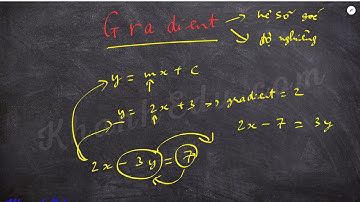 Gradient → hệ số góc
→ độ nghiêng
y = mx + c
y = 2x + 3 => gradient = 2
2x - 7 = 3y
2x - 3y = 7